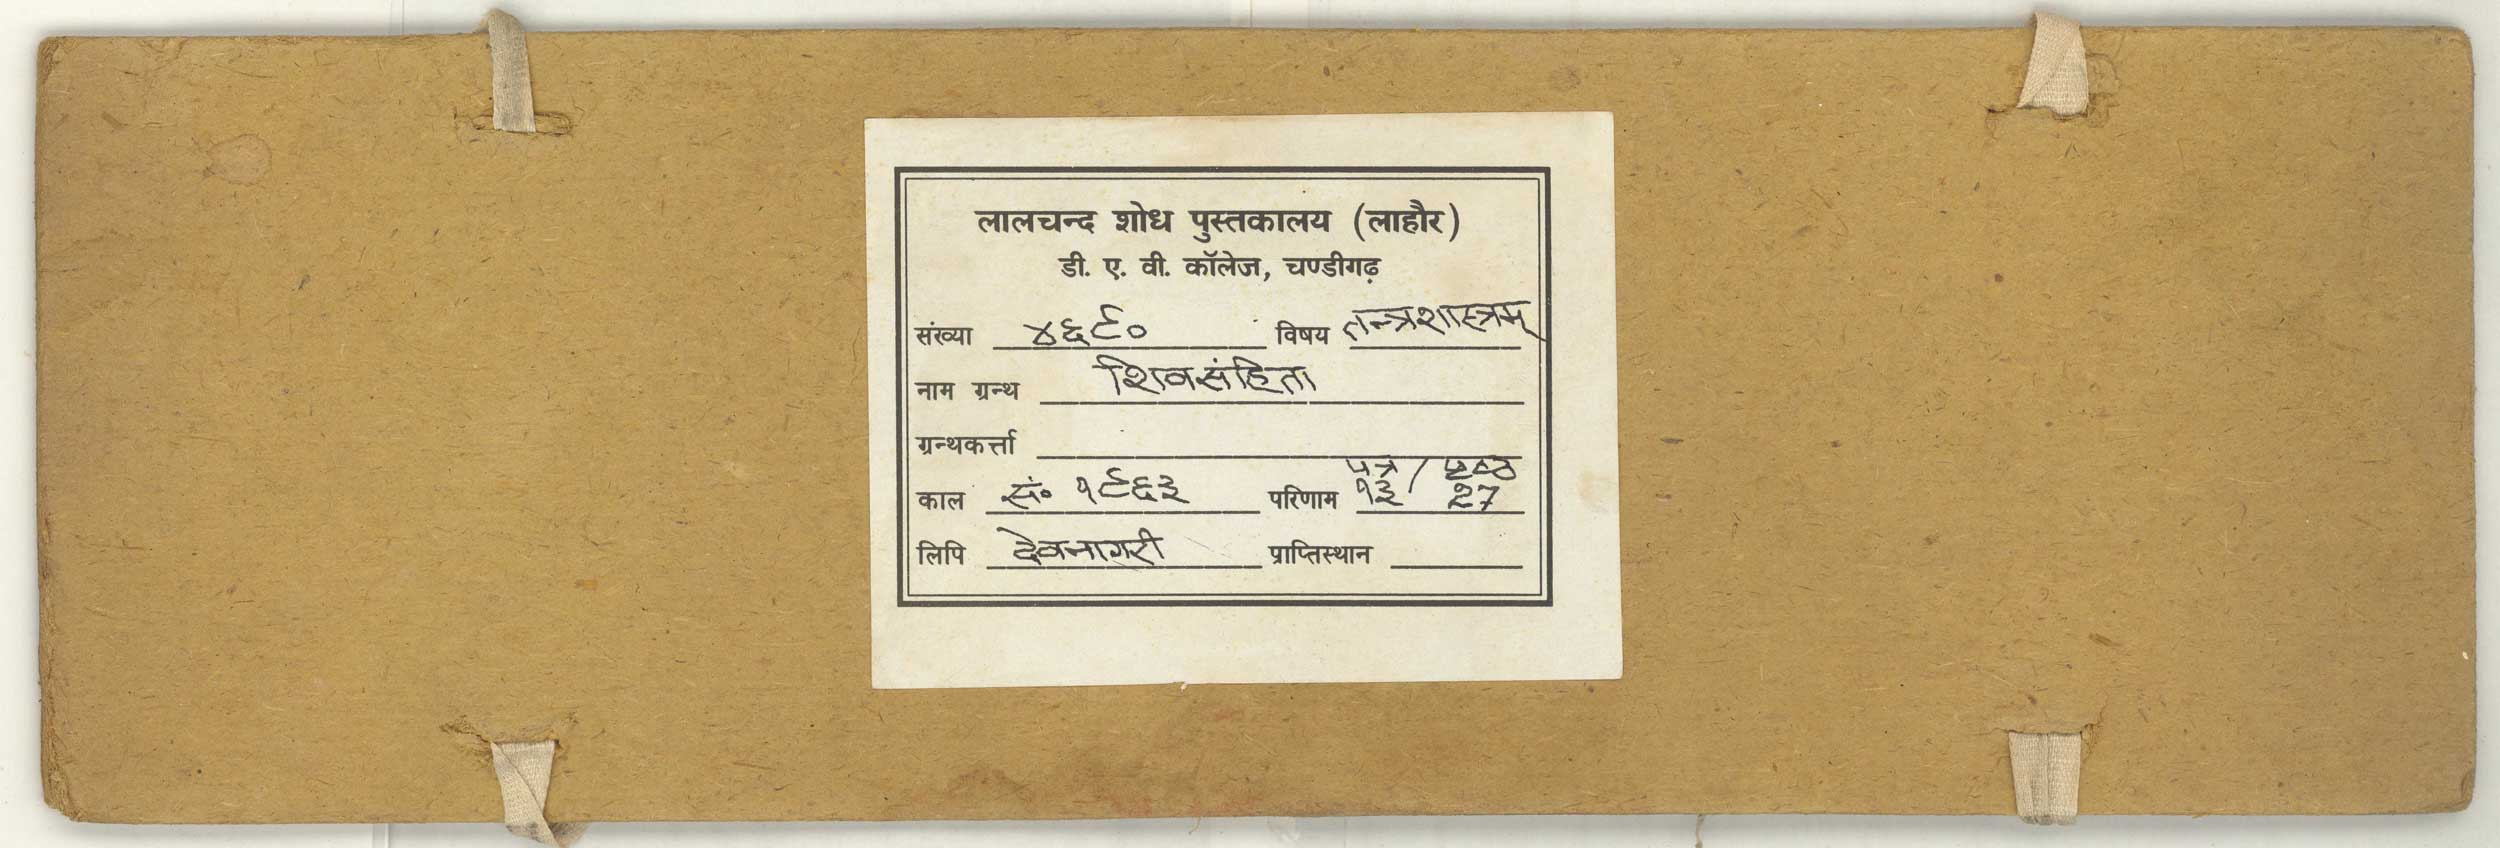 लालचन्द शोध पुस्तकालय (लाहौर)
डी. ए. वी. कॉलेज, चण्डीगढ़
संख्या ४६९० विषय तन्त्रशास्त्रम्
नाम ग्रन्थ शिवसंहिता
ग्रन्थकर्त्ता
पत्र / पृष्ठ
काल सं० १९६३ परिणाम १३ 27
लिपि देवनागरी प्राप्तिस्थान